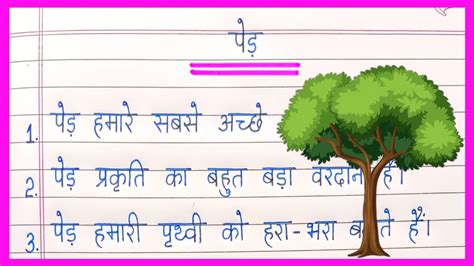 पेड़
1. पेड़ हमारे सबसे अच्छे
2. पेड़ प्रकृति का बहुत बड़ा वरदान है।
3. पेड़ हमारी पृथ्वी को हरा-भरा ते हैं।